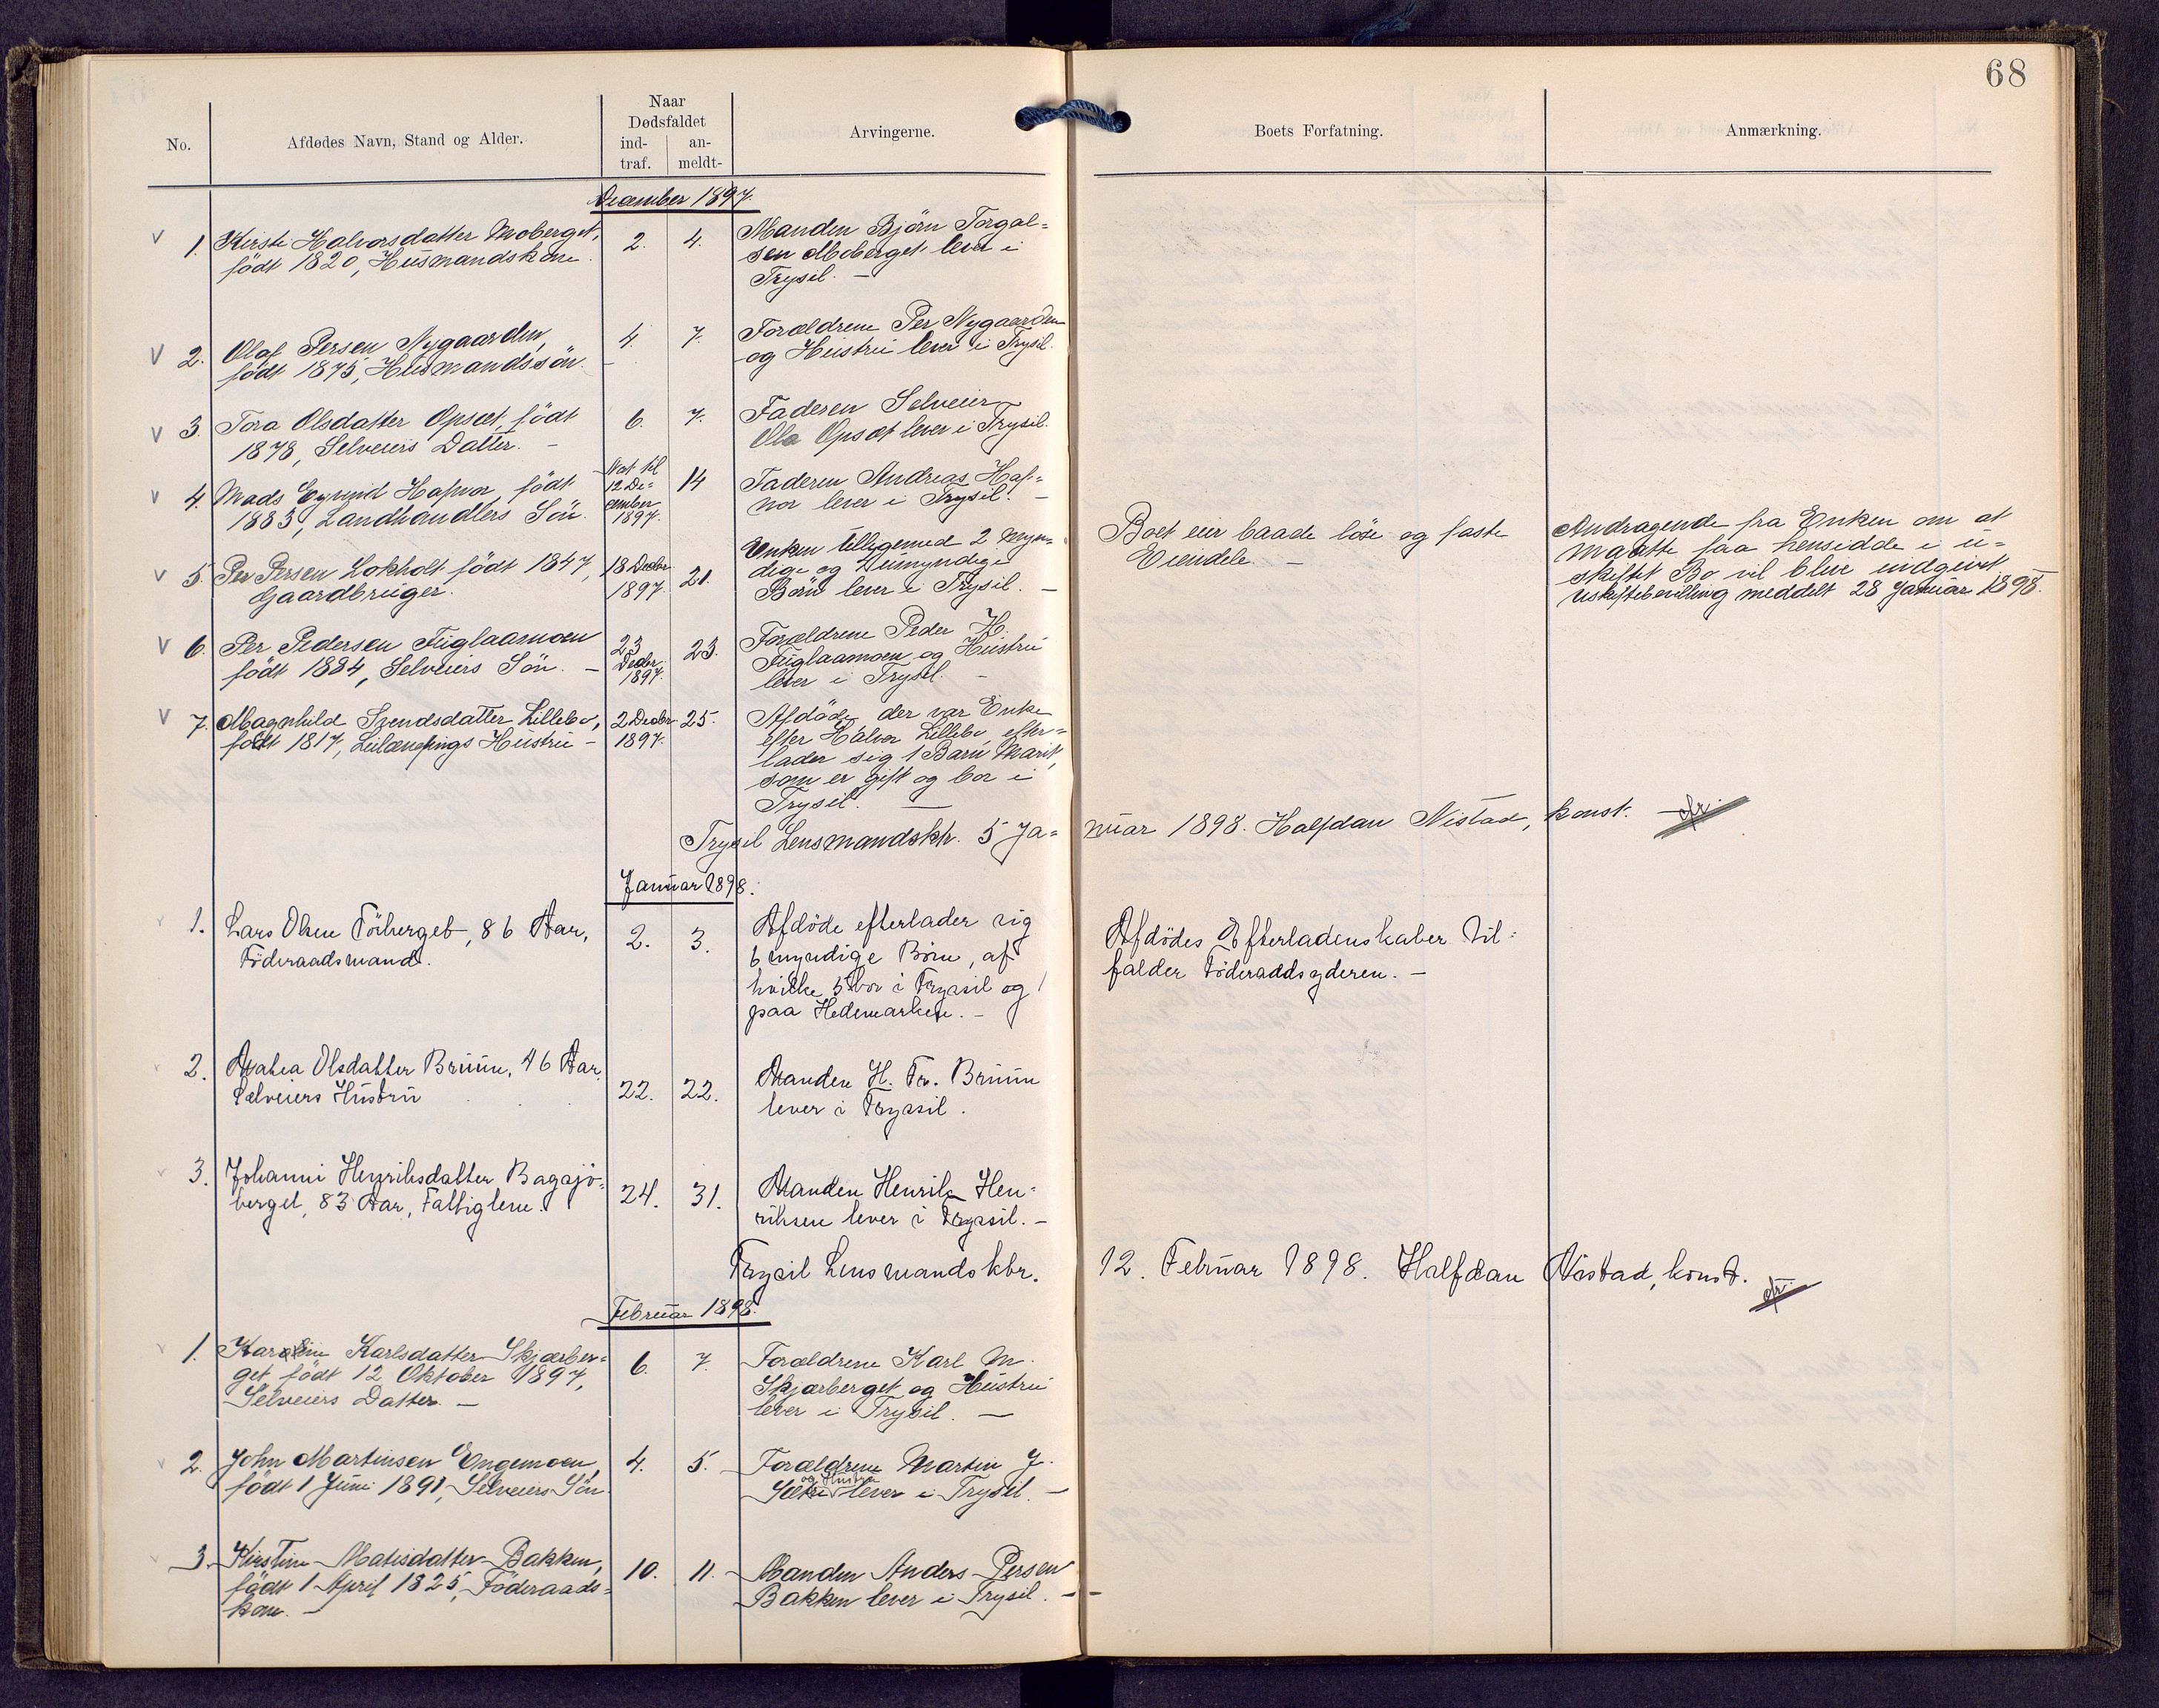 68
No.
Afdødes Navn, Stand og Alder.
Naar
Dødsfaldet
ind-
traf.
an-
meldt-
Arvingerne.
Boets Forfatning.
Anmærkning.
December 1897.
1. Kirsti Halvorsdatter Moberget,
født 1820, Husmandskone.
2. 4.
Manden Björn Torgal=
sen Moberget lever i
Trysil. —
2. Olaf Persen Nygaarden,
født 1875, Husmandssön.
4. 7.
Forældrene Per Nygaarden
og Hustru lever i Trysil.
3. Tora Olsdatter Opsæt, født
1878, Selveiers Datter. —
6. 7.
Faderen Selveier
Ola Opsæt lever i Trysil.
4. Mads Eyvind Hafnor, født
1883, Landhandlers Sön.
Nat til
12 De=
cember
1897.
14
Faderen Andreas Haf=
nor lever i Trysil. —
5. Per Persen Lokholt født 1847,
Gaardbruger.
18 Decbr
1897.
21.
Enken tilligemed 2 myn=
dige og 2 umyndige
Börn lever i Trysil. —
Boet eier baade löse og faste
Eiendele. —
Andragende fra Enken om at
maatte faa hensidde i u=
skiftet Bo vil blive indgivet
Uskiftebevilling meddelt 28 Januar 1898.
6. Per Pedersen Fuglaamoen
født 1884, Selveiers Sön. —
23
Decbr.
1897.
23.
Forældrene Peder H.
Fuglaamoen og Hustru
lever i Trysil. —
7. Magnhild Svendsdatter Lillebo,
født 1817, Leilændings Hustru —
2 Decbr
1897.
25.
Afdöde, der var Enke
efter Halvor Lillebo, efter=
lader sig 1 Barn Marit,
som er gift og bor i
Trysil. —
Trysil Lensmandsktr. 5 Ja=
nuar 1898. Halfdan Nistad, konst.
Januar 1898.
1. Lars Olsen Törberget, 86 Aar,
Föderaadsmand.
2. 3.
Afdöde efterlader sig
6 myndige Börn, af
hvilke 5 bor i Trysil og 1
paa Hedemarken. —
Afdödes Efterladenskaber til=
falder Föderaadsyderen. —
2. Mathea Olsdatter Bruun, 46 Aar
Selveiers Hustru
22. 22.
Manden H. Fr. Bruun
lever i Trysil.
3. Johanni Henriksdatter Bagasjö=
berget, 83 Aar, Fattiglem.
24. 31.
Manden Henrik Hen=
riksen lever i Trysil. —
Trysil Lensmandsktr.
12. Februar 1898. Halfdan Nistad, konst.
Februar 1898.
1. Karoline Karlsdatter Skjærber=
get født 12 Oktober 1897,
Selveiers Datter. —
6. 7.
Forældrene Karl M.
Skjærberget og Hustru
lever i Trysil. —
2. John Martinsen Engemoen,
født 1 Juni 1891, Selveiers Sön
4. 5.
Forældrene Martin J.
og Hustru
lever i Trysil. —
3. Kirstine Matisdatter Bakken,
født 1 April 1825, Föderaads=
kone. —
10. 11.
Manden Anders Persen
Bakken lever i Trysil. —